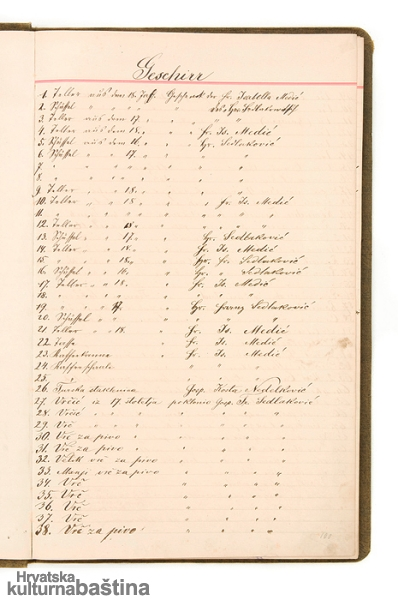 Geschirr
1. Teller aus dem 18. Jah. Geschenk der Fr. Isabella Medić
2. Schüssel " " " " "
3. Teller aus dem 17. " " "
4. Teller aus dem 18. " " Fr. Is. Medić
5. Schüssel aus dem 16. " " Hr. Sedlaković
6. Schüssel " " 17. " " "
7. " " " " " "
8. " " " " " "
9. Teller " " 18. " " "
10. Teller " " 18 " " Fr. Is. Medić
11. " " " " " "
12. Teller " " 18 " " "
13. Schüssel " " 17. " " Hr. Sedlaković
14. Teller " " 18. " " Fr. Is. Medić
15. " " " 18. " " Hr. Fr. Sedlaković
16. Schüssel " " 16. " Hr. " Sedlaković
17. Teller " " 18. " " Fr. Is. Medić
18. " " " " " "
19. " " " 17. " " Hr. Franz Sedlaković
20. Schüssel " " " " "
21 Teller " " 18. " Fr. Is. Medić
22. " Fr. Is. Medić
23. Kaffeekanne " Fr. Is. Medić
24. " " "
25. " " "
26. Turska Gosp. Kosta Nedelković
27. Vrčić iz 17 stoletja poklonio Gosp. Fr. Sedlaković
28. Vrčić " " " " "
29. Vrč " " " "
30. Vrč za pivo " " " "
31. Vrč za pivo " " " "
32. Velik vrč za pivo " " " "
33. Manji vrč za pivo " " " "
34. Vrč " " " "
35. Vrč " " " "
36. Vrč " " " "
37. Vrč " " " "
38. Vrč za pivo " " " "
Hrvatska
kulturnabaština